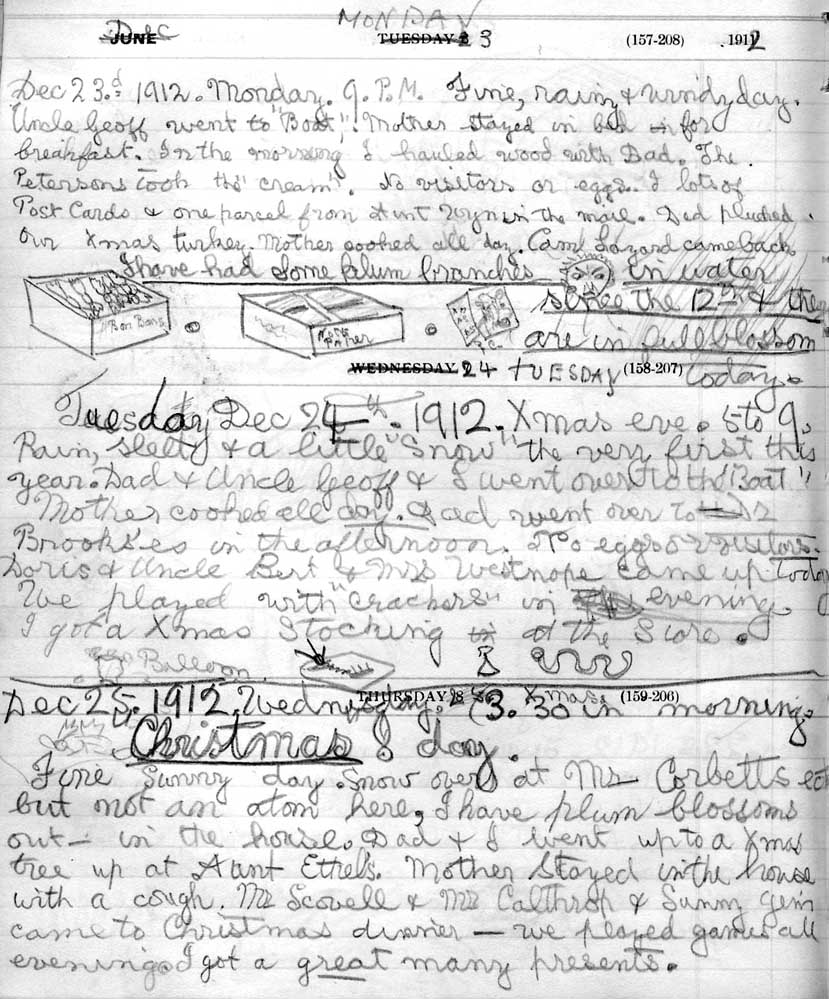 MONDAY
Dec JUNE TUESDAY 23 (157-208) 1912
Dec 23.d 1912. Monday. 9. P.M. Fine, rainy & windy day.
Uncle Geoff went to "Boat". Mother stayed in bed in for
breakfast. In the morning I hauled wood with Dad. The
Petersons took the 'cream'. No visitors or eggs. I lots of
Post Cards & one parcel from Aunt Wyn in the mail. Dad plucked
our Xmas turkey. Mother cooked all day. Caml Lazard came back
I have had some plum branches in water
since the 12th & they
are in full blossom
today.
Bon Bons
NOTE PAPER
WEDNESDAY 24 TUESDAY (158-207)
Tuesday Dec 24th. 1912. Xmas eve. 5 to 9.
Rain, sleety & a little "Snow" the very first this
year. Dad & Uncle Geoff & I went over to the "Boat"
Mother cooked all day. Dad went over to Mr
Brooks'es in the afternoon. No eggs or visitors.
Doris & Uncle Bert & Mrs Westnope came up today
We played with "crackers" in evening.
I got a Xmas Stocking at the Store.
Balloon
THURSDAY 25 Xmas (159-206)
Dec 25, 1912. Wednesday. (3.30 in morning.
Christmas! day.
Fine Sunny day. Snow over at Mr Corbetts
but not an atom here, I have plum blossoms
out — in the house. Dad & I went up to a Xmas
tree up at Aunt Ethel's. Mother Stayed in the house
with a cough. Mr Scovell & Mr Calthrop & Sunny Jim
came to Christmas dinner — we played games all
evening. I got a great many presents.